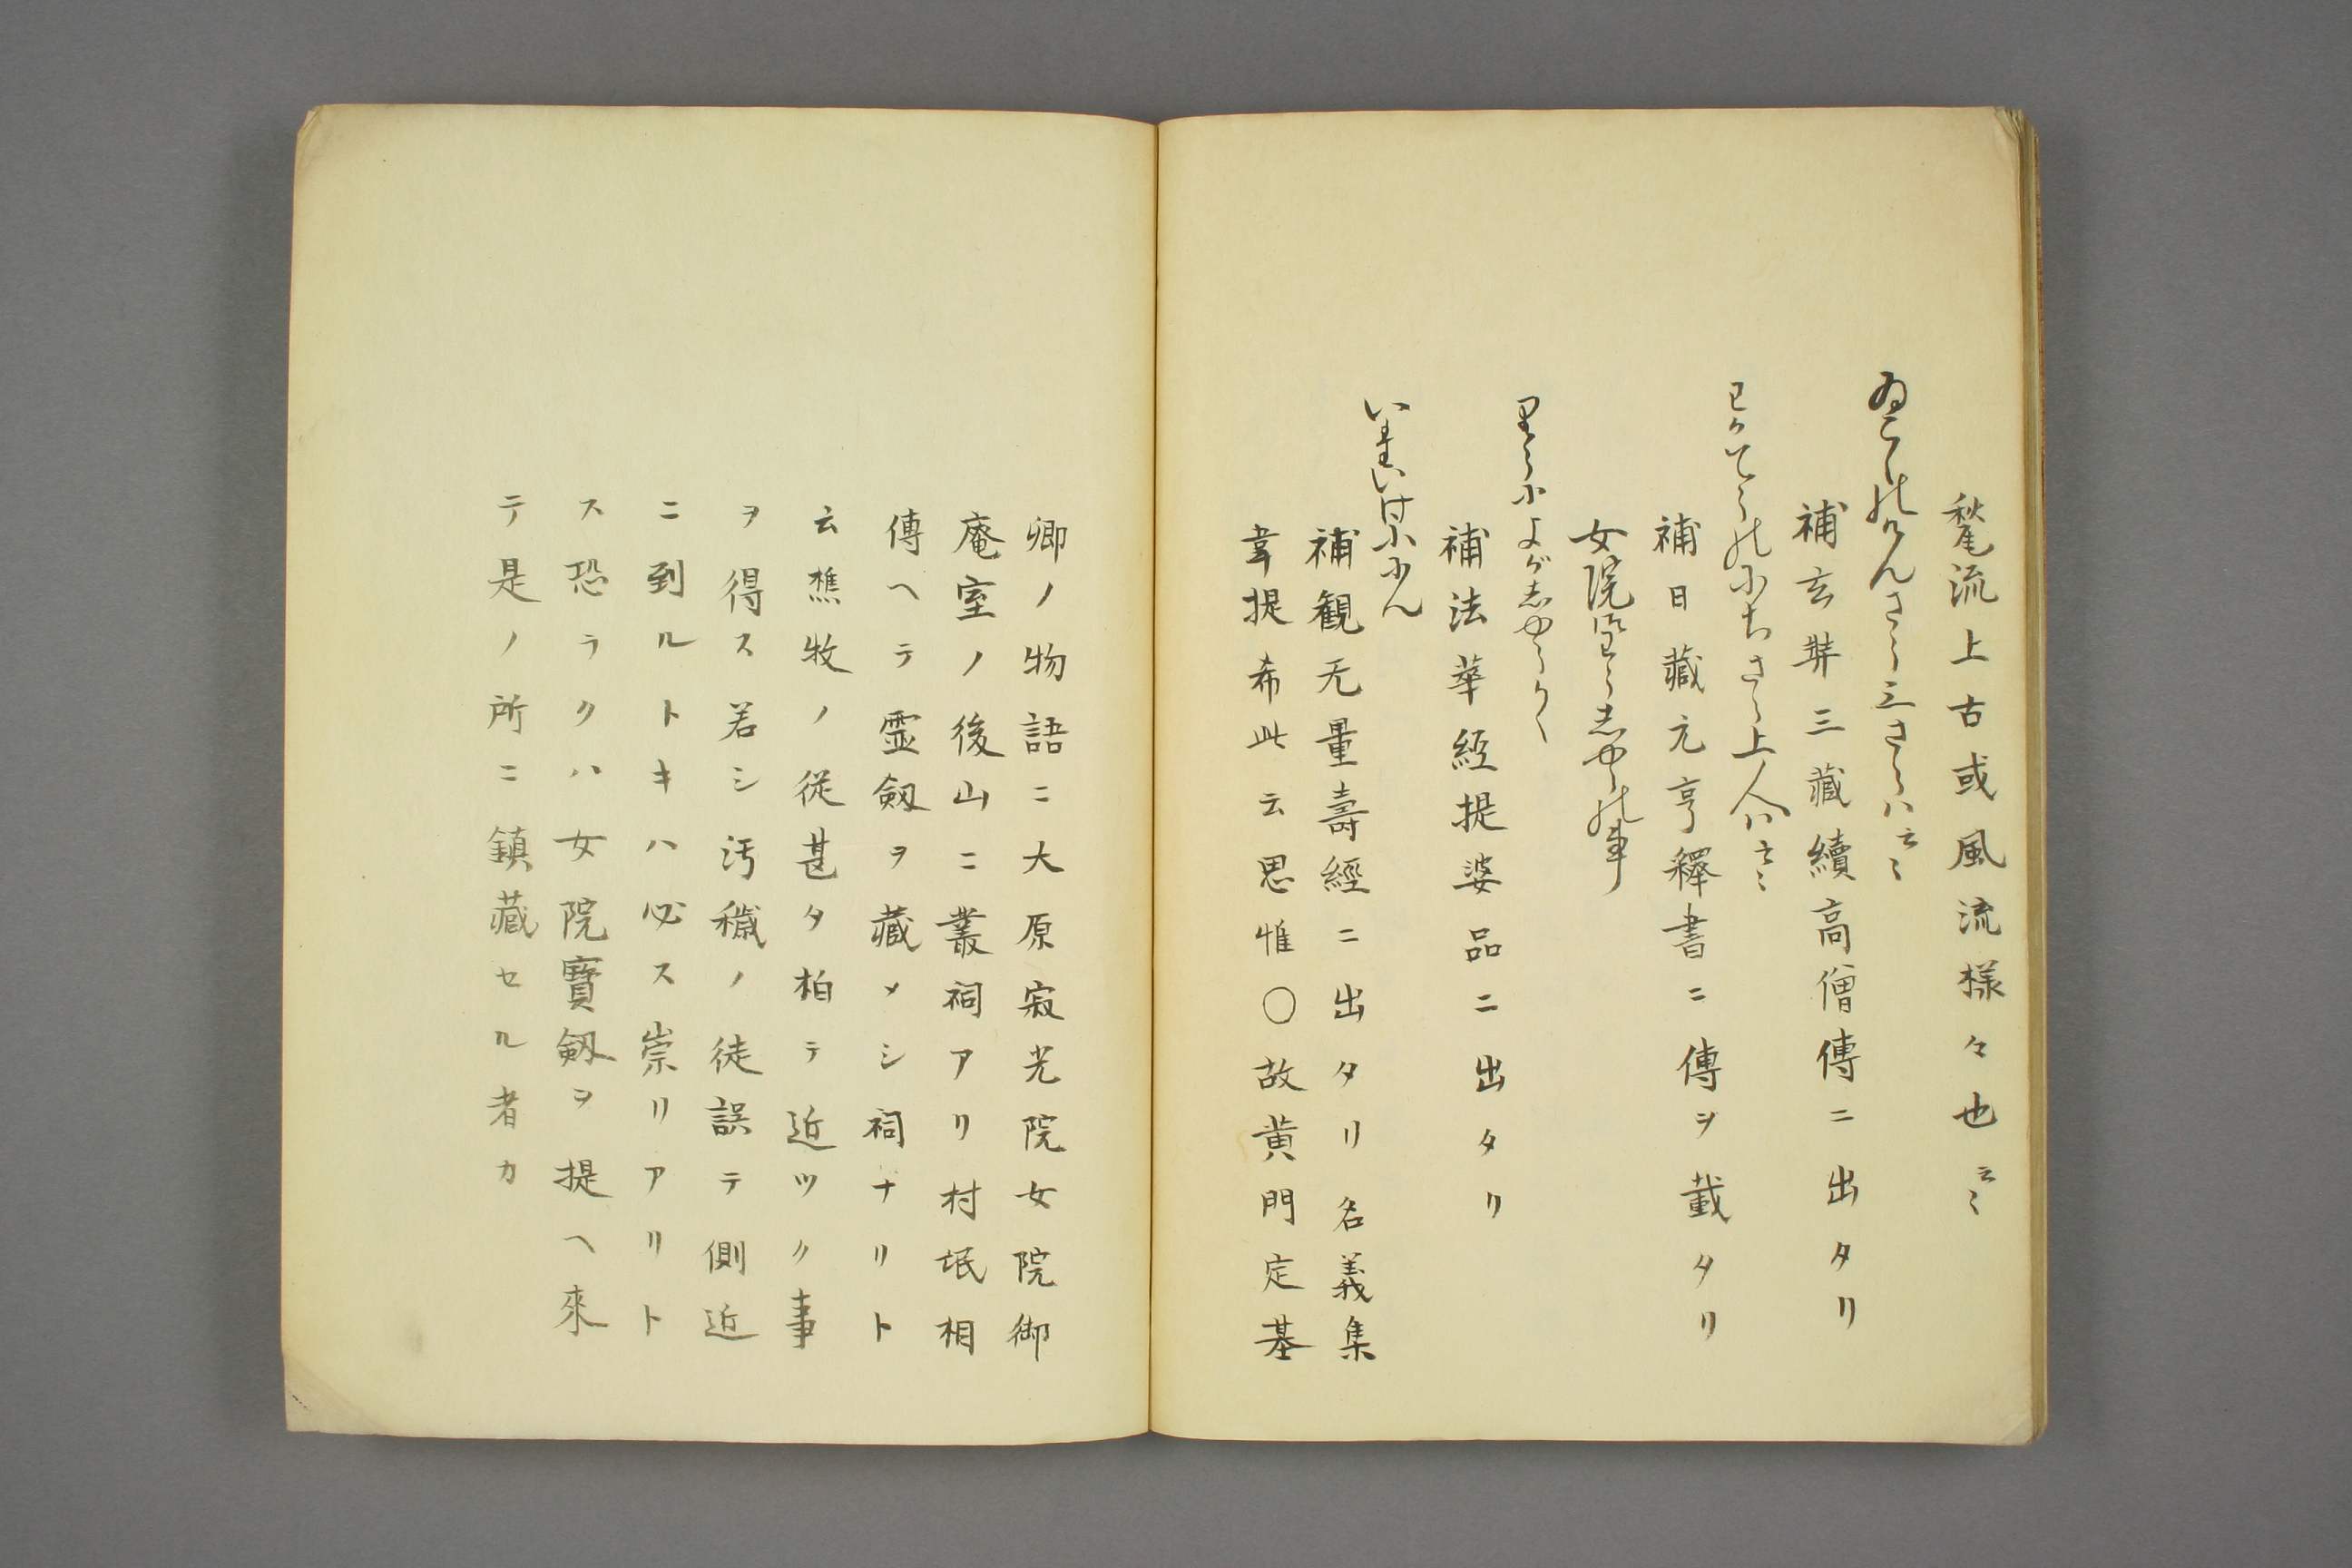 髦流上古或風流様々也云々
ゐこくのけんさう三さうハ云々
補玄弉三藏續高僧傳ニ出タリ
わかてうのにちさう上人ハ云々
補日藏元亨釋書ニ傳ヲ載タリ
女院わうしやうの事
りうによがしやうかく
補法華經提婆品ニ出タリ
いたいけふにん
補觀无量壽經ニ出タリ名義集
韋提希此云思惟〇故黄門定基
卿ノ物語ニ大原寂光院女院御
庵室ノ後山ニ叢祠アリ村氓相
傳ヘテ霊劔ヲ藏メシ祠ナリト
云樵牧ノ従甚タ柏テ近ツク事
ヲ得ス若シ汚穢ノ徒誤テ側近
ニ到ルトキハ必ス崇リアリト
ス恐ラクハ女院寶劔ヲ提ヘ來
テ是ノ所ニ鎮藏セル者カ